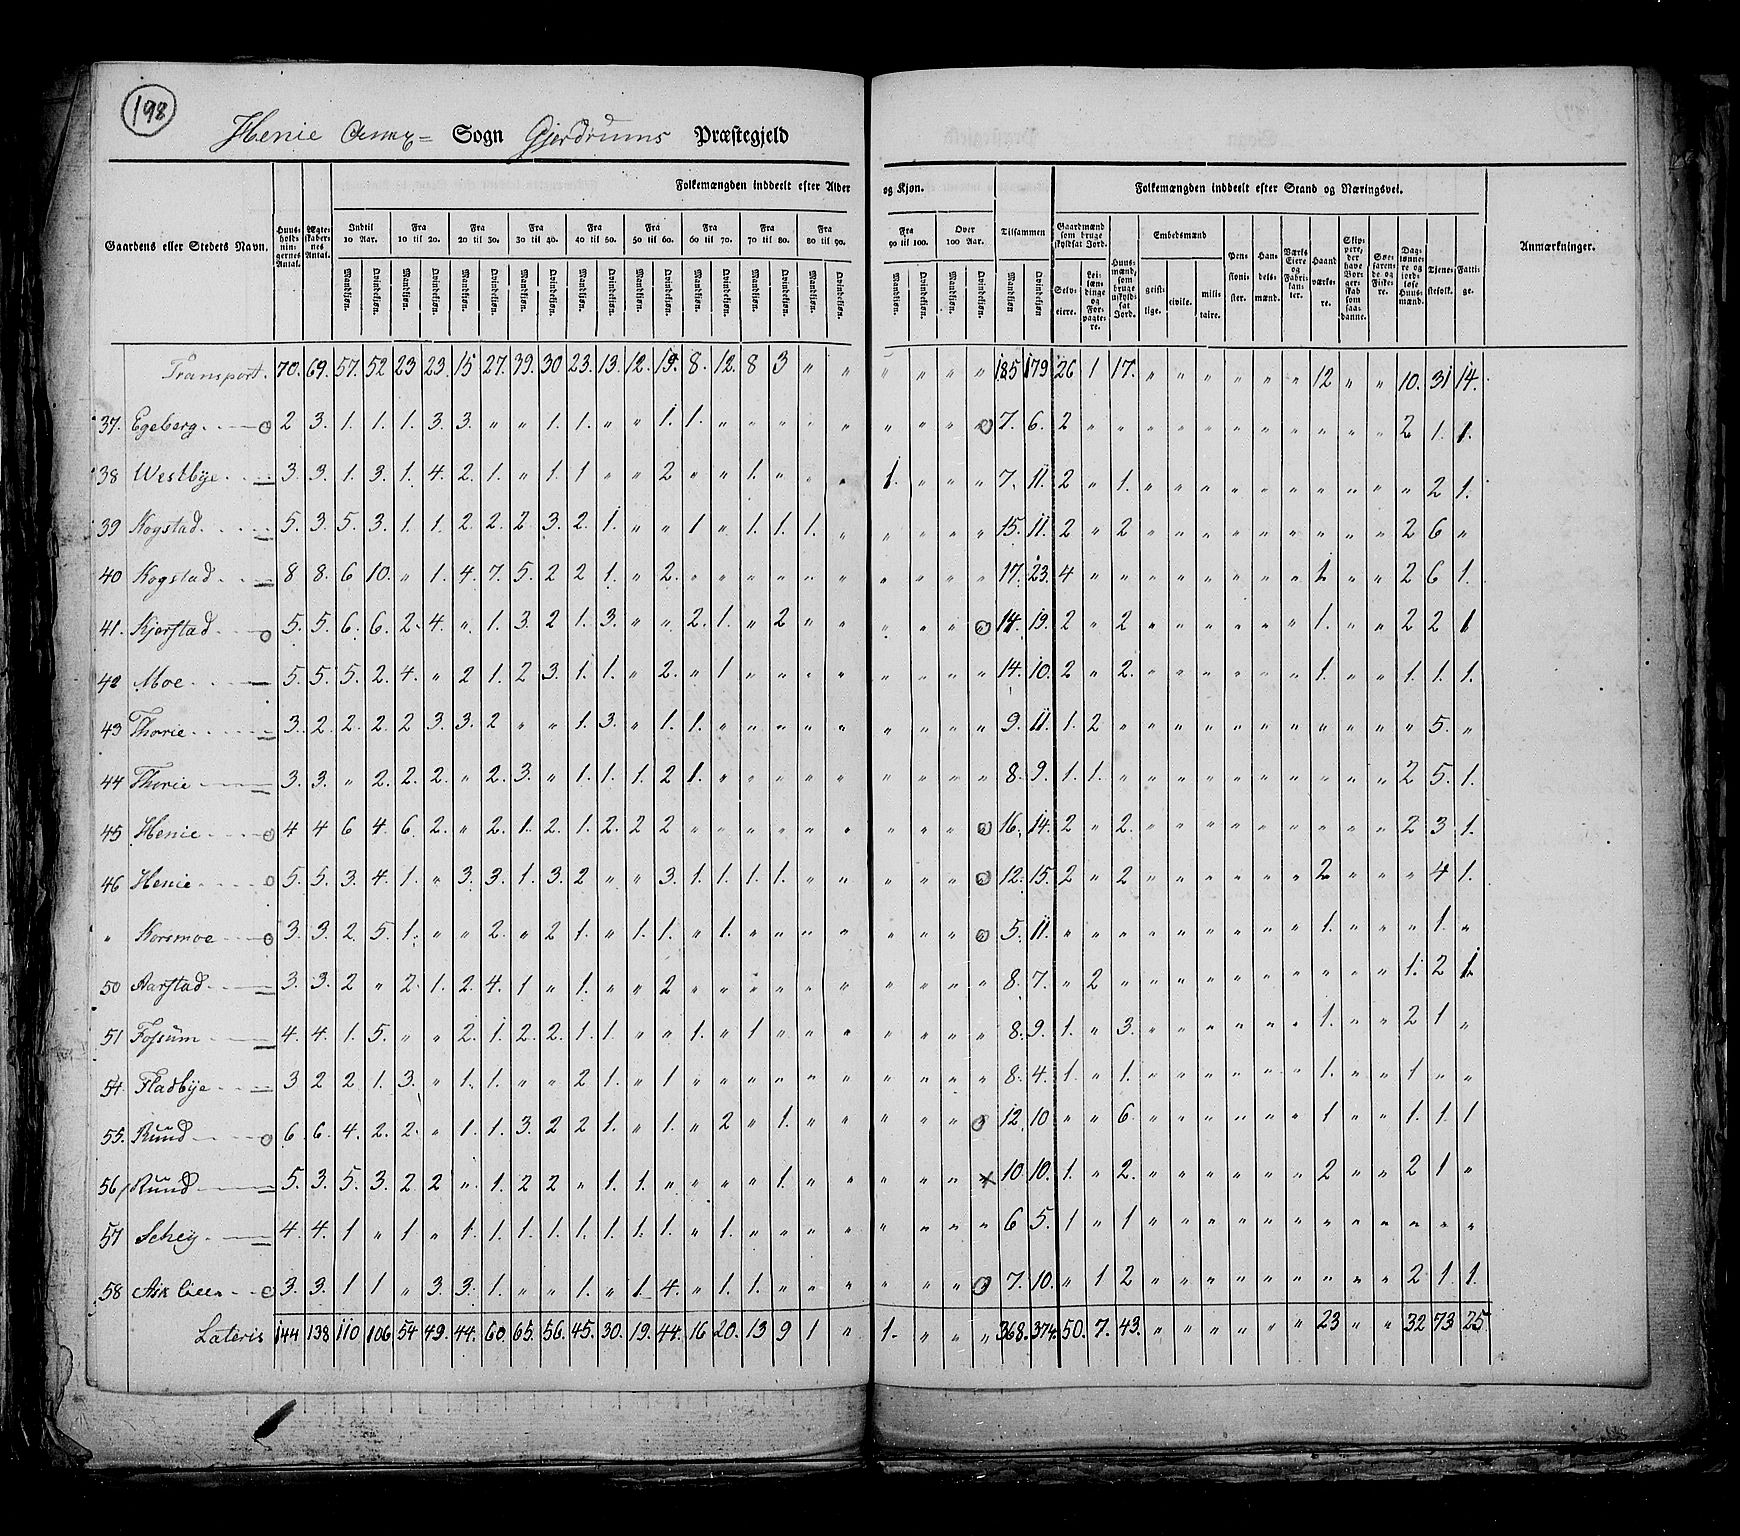 198
Henie Annex= Sogn Gjerdrums Præstegjeld
Gaardens eller Stedets Navn. Huusholdningernes Antal. Ægteskabernes Antal. Folkemængden inddeelt efter Alder og Kjøn. Tilsammen Folkemængden inddeelt efter Stand og Næringsvei. Anmærkninger.
Indtil 10 Aar. Fra 10 til 20. Fra 20 til 30. Fra 30 til 40. Fra 40 til 50. Fra 50 til 60. Fra 60 til 70. Fra 70 til 80. Fra 80 til 90. Fra 90 til 100. Over 100 Aar.
Mandkjøn. Qvindekjøn. Mandkjøn. Qvindekjøn. Mandkjøn. Qvindekjøn. Mandkjøn. Qvindekjøn. Mandkjøn. Qvindekjøn. Mandkjøn. Qvindekjøn. Mandkjøn. Qvindekjøn. Mandkjøn. Qvindekjøn. Mandkjøn. Qvindekjøn. Mandkjøn. Qvindekjøn. Mandkjøn. Qvindekjøn. Mandkjøn Qvindekjøn.
Gaardmænd som bruge skyldsat Jord. Selveiere. Leilændinge og Forpagtere. Huusmænd, som bruge uskyldsat Jord. Embedsmænd geistlige. civile. militaire. Pensionister. Handelsmænd. Værks Eiere og Fabrikanter. Haandværkere. Skippere, der have Borgerskab som saadanne. Søefarende og Fiskere. Daglønnere og jordløse Huusmænd. Tjenestefolk. Fattige.
Transport. 70. 69. 57. 52 23 23. 15 27. 39. 30 23. 13. 12. 19. 8. 12. 8 3 " " " " " " 185 179 26 1 17. " " " " " " 12 " " 10. 31 14.
37. Egeberg. 2 3. 1. 1. 1. 3. 3. " " 1. 1. " " 1. 1. " " " " " " " " " 7. 6. 2 " " " " " " " " " " " 2 1. 1.
38 Westbÿe. 3. 3. 1. 3. 1. 4. 2. 1. " 1. 1 " " 2 " " 1. " " " 1. " " " 7. 11. 2 " 1. " " " " " " " " " " 2 1.
39 Kogstad. 5. 3. 5. 3. 1. 1. 2. 2. 2 3. 2. 1. " " 1 " 1. 1. 1. " " " " " 15. 11. 2 " 2 " " " " " " " " " 2 6 "
40 Kogstad. 8 8. 6 10. " 1. 4. 7. 5. 2 2 1. " 2. " " " " " " " " " " 17. 23. 4 " " " " " " " " 1. " " 2 6 1.
41. Kjerstad. 5. 5. 6. 6. 2. 4. " 1. 3. 2 1. 3. " " 2. 1. " 2 " " " " " " 14. 19. 2 " 2 " " " " " " 1. " " 2 2 1
42 Moe. 5. 5. 5. 2. 4. " 2 1. 2 3. 1. 1. " 2. " 1 " " " " " " " " 14. 10. 2 " 2. " " " " " " 1. " " 1. 1. 1.
43 Thorie. 3. 2 2. 2. 2 3. 3. 2 " " 1. 3. " 1. 1. " " " " " " " " " 9. 11. 1. 2 " " " " " " " " " " " 5. "
44 Thorie 3. 3. " 2. 2. 2. " 2. 3. " 1. 1. 1. 2 1. " " " " " " " " " 8. 9. 1. 1. " " " " " " " " " " 2 5. 1.
45 Henie 4 4 6 4. 6. 2. " 2. 1. 2. 1. 2. 2 2 " " " " " " " " " " 16. 14. 2 " 2. " " " " " " " " " 2 3 1.
46 Henie 5. 5. 3. 4. 1. " 3. 3. 1. 3. 2 " " 3. 1. 1. 1. 1. " " " " " " 12. 15. 2 " 2 " " " " " " 2 " " " 4 1.
" Korsmoe 3. 3. 2. 5. 1. " " 2. " 2 1. " 1. 1. " 1. " " " " " " " " 5. 11. " " " " " " " " " 1. " " " 1. "
50 Aarstad 3. 3. 2 " 2. 1. 2. 4. 1 " 1. " " 2 " " " " " " " " " " 8. 7. " 2 " " " " " " " " " " 1. 2 1.
51 Fossum 4. 4. 1. 5. " " 2. 1. 2. 2. 1. 1. " " 1. " 1 " " " " " " " 8. 9. 1. " 3. " " " " " " 1. " " 2 1 "
54 Fladbÿe 3 2 2 1. 3. " 1. 1. " " 2 1. " 1 " " " " " " " " " " 8. 4. 1. " 1. " " " " " " 1. " " 1 " "
55. Ruud 6. 6. 4. 2. 2. " 1. 1. 3. 2 2 1. " 1. " 2 " 1. " " " " " " 12. 10 " " 6. " " " " " " 1 " " 1. 1. 1
56 Ruud 5. 3. 5. 3. 2 2 " 1. 2 2 " 1. 1. " " " " 1. " " " " " " 10 10. 1. " 2. " " " " " " 2 " " 2 1 "
57 Schey. 4. 4. 1 " 1 " 1. 1. 1. 1. 1. 1. 1. 1. " 1. " " " " " " " " 6 5. 1 " 1 " " " " " " " " " " " "
58 Ask 3. 3. 1 1 " 3. 3. 1. " " 1. " 1 4. " 1. 1. " " " " " " " 7. 10. " 1 2 " " " " " " " " " 2 1. 1.
Lateris 144 138 110 106 54 49. 44. 60. 65. 56. 45. 30. 19. 44. 16 20. 13 9 1 " 1. " " " 368. 374. 50. 7. 43. " " " " " " 23 " " 32 73 25.